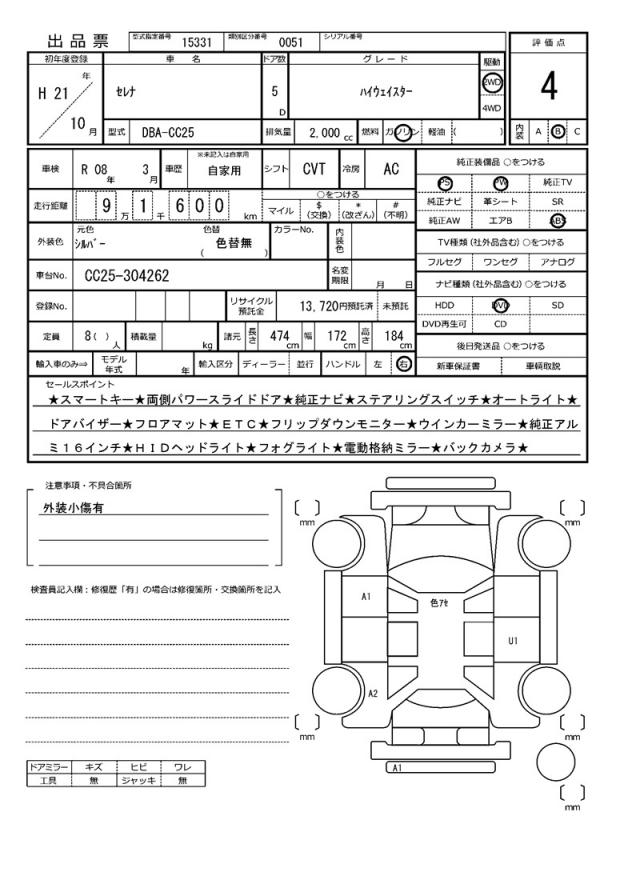 出品票 型式指定番号 15331 類別区分番号 0051 シリアル番号
評価点
4
初年度登録 車名 ドア数 グレード 駆動
H 21 年 10 月 セレナ 5 D ハイウェイスター 2WD 4WD
型式 DBA-CC25 排気量 2,000 cc 燃料 ガソリン 軽油 ( )
内装 A B C
車検 R 08 年 3 月 車歴 ※未記入は自家用 自家用 シフト CVT 冷房 AC
走行距離 9 万 1 千 6 0 0 km
○をつける
マイル $ (交換) * (改ざん) # (不明)
外装色 元色 シルバー 色替 色替無 ( ) カラーNo. 内装色
車台No. CC25-304262 名変期限 月 日
登録No. リサイクル預託金 13,720円預託済 未預託
定員 8( ) 人 積載量 kg 諸元 長さ 474 cm 幅 172 cm 高さ 184 cm
輸入車のみ⇒ モデル年式 年 輸入区分 ディーラー 並行 ハンドル 左 右
純正装備品 ○をつける
PS PW 純正TV
純正ナビ 革シート SR
純正AW エアB ABS
TV種類 (社外品含む) ○をつける
フルセグ ワンセグ アナログ
ナビ種類 (社外品含む) ○をつける
HDD DVD SD
DVD再生可 CD
後日発送品 ○をつける
新車保証書 車輌取説
セールスポイント
★スマートキー★両側パワースライドドア★純正ナビ★ステアリングスイッチ★オートライト★
ドアバイザー★フロアマット★ETC★フリップダウンモニター★ウインカーミラー★純正アル
ミ16インチ★HIDヘッドライト★フォグライト★電動格納ミラー★バックカメラ★
注意事項・不具合箇所
外装小傷有
検査員記入欄：修復歴「有」の場合は修復箇所・交換箇所を記入
ドアミラー キズ ヒビ ワレ
工具 無 ジャッキ 無
mm
mm
A1
色アセ
U1
A2
mm
mm
A1
mm